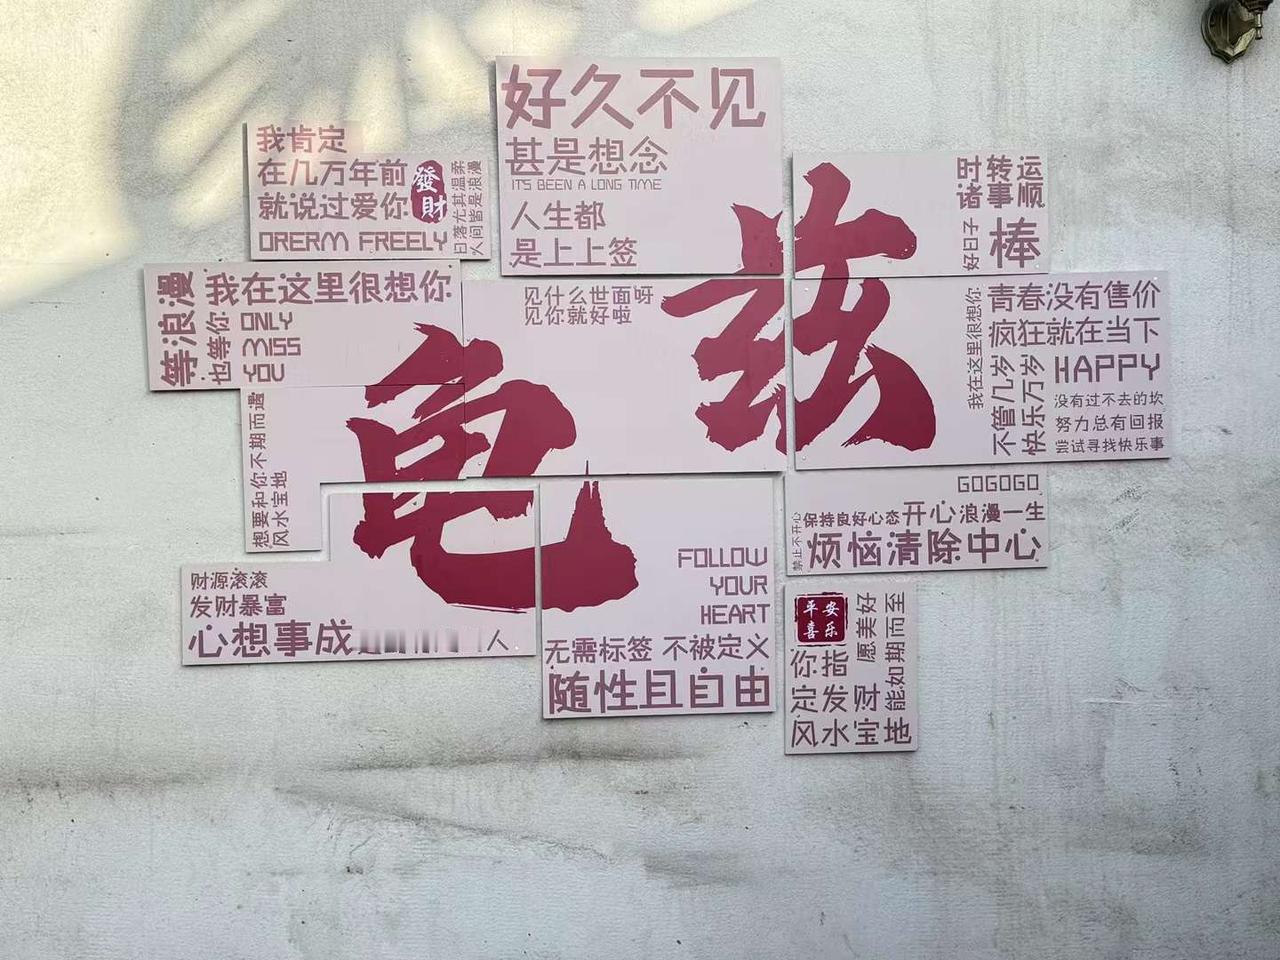 好久不见
甚是想念
IT'S BEEN A LONG TIME
人生都
是上上签
我肯定
在几万年前
就说过爱你
發財
日落尤其温柔
人间皆是浪漫
DRERM FREELY
时转运
诸事顺
好日子
棒
等浪漫
也等你
我在这里很想你
ONLY
MISS
YOU
见什么世面呀
见你就好啦
龟兹
我在这里很想你
青春没有售价
疯狂就在当下
不管几岁
快乐万岁
HAPPY
没有过不去的坎
努力总有回报
尝试寻找快乐事
想要和你不期而遇
风水宝地
GOGOGO
禁止不开心
保持良好心态
开心
浪漫一生
烦恼清除中心
财源滚滚
发财暴富
心想事成
人
FOLLOW
YOUR
HEART
无需标签 不被定义
随性且自由
平安
喜乐
愿美好
能如期而至
你指
定发财
风水宝地